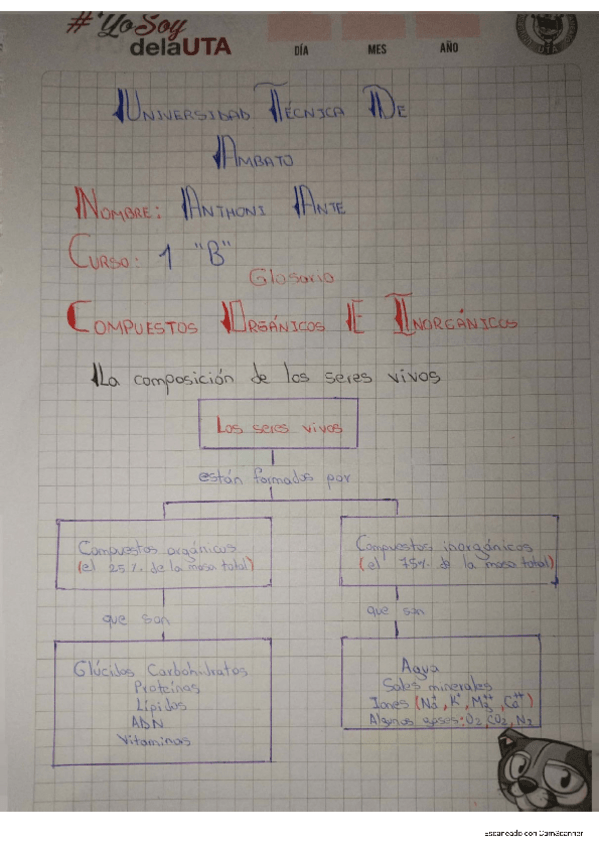 #YoSoy
delaUTA
DÍA MES AÑO
Universidad Técnica De
Ambato
Nombre: Anthoni Ante
Curso: 1 "B"
Glosario
Compuestos Orgánicos E Inorgánicos
La composición de los seres vivos
Los seres vivos
están formados por
Compuestos orgánicos
(el 25% de la masa total)
que son
Glúcidos Carbohidratos
Proteínas
Lípidos
ADN
Vitaminas
Compuestos inorgánicos
(el 75% de la masa total)
que son
Agua
Sales minerales
Iones (Na+, K+, Mg++, Ca++)
Algunos gases: O2, CO2, N2
Escaneado con CamScanner